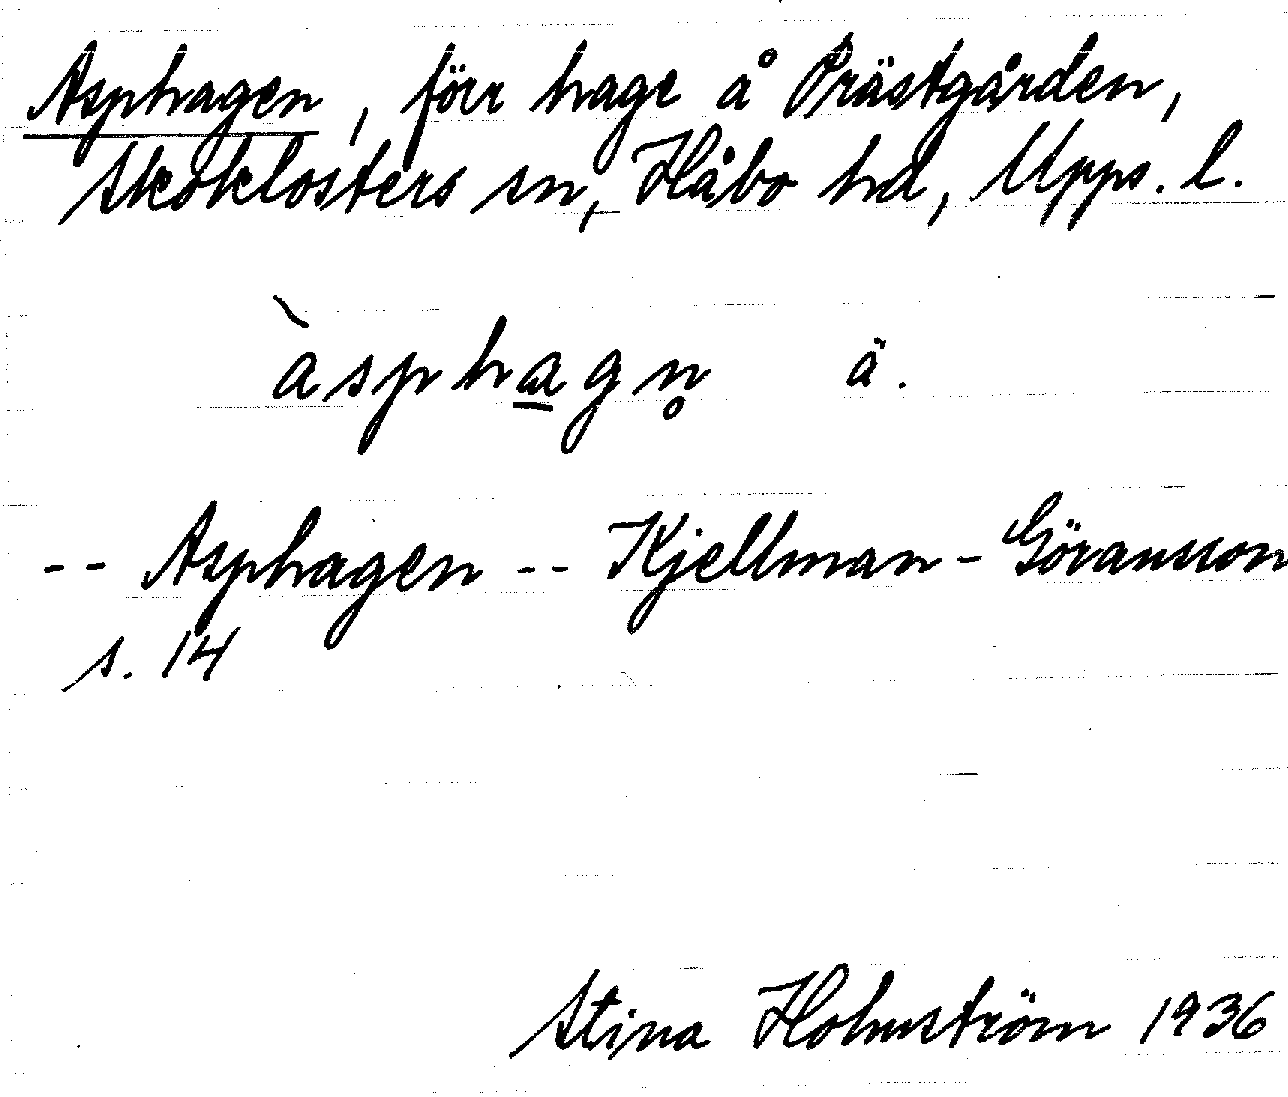 Asphagen, förr hage å Prästgården,
Skoklosters sn, Håbo hd, Upps. l.
àsphagn̥ ä.
-- Asphagen -- Kjellman-Göransson
s. 14
Stina Holmström 1936